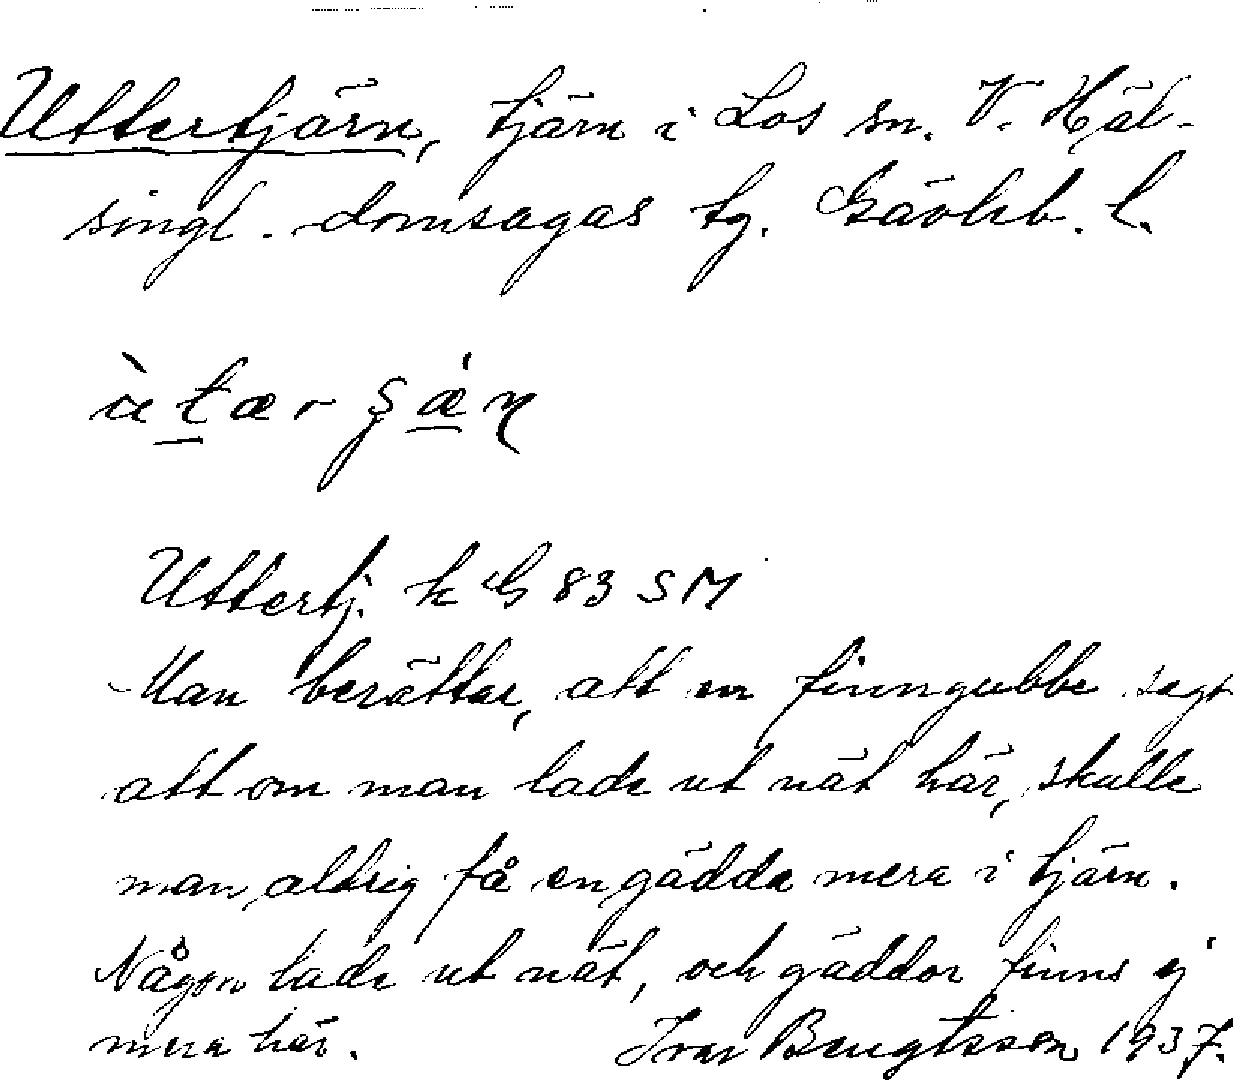 Uttertjärn, tjärn i Los sn. V. Häl-
singl. domsagas tg. Gävleb. l.
Uttertj. k G 83 SM
Man berättar, att en finngubbe sagt
att om man lade ut nät här, skulle
man aldrig få en gädda mera i tjärn.
Någon lade ut nät, och gäddor finns ej
mera här. Ivar Bengtsson 1937.